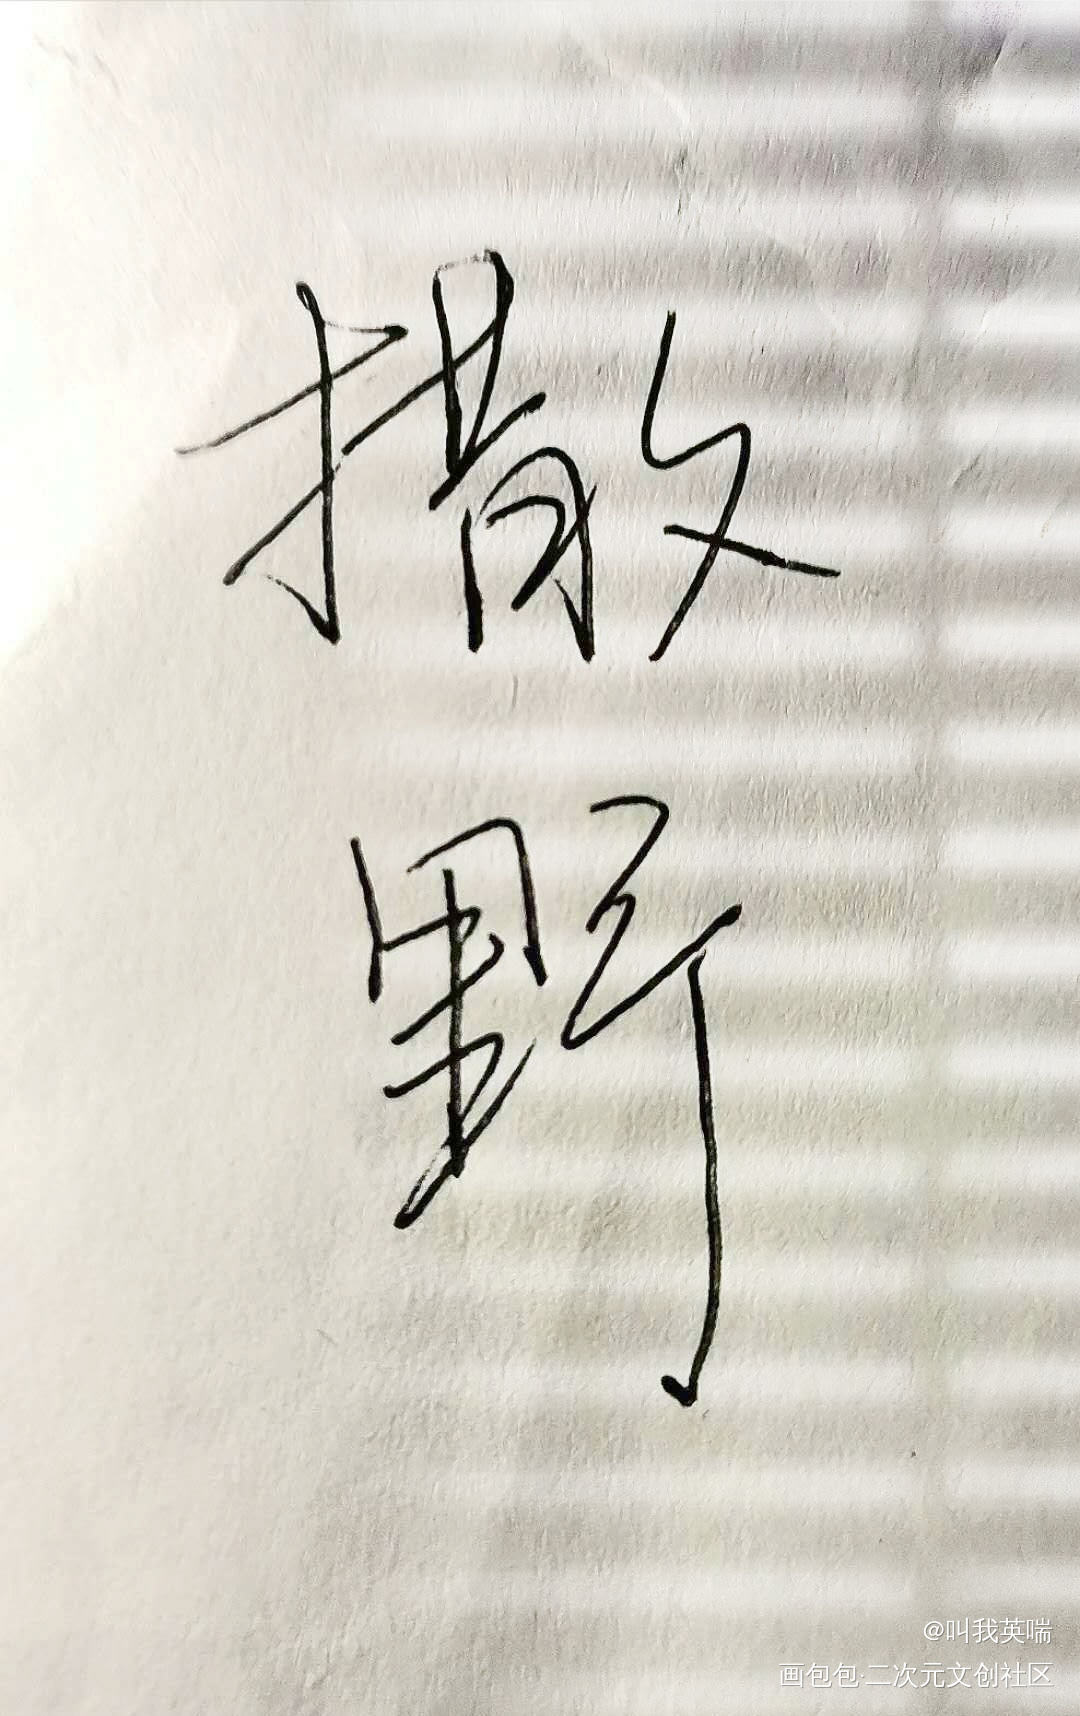 撒
野
@叫我英喘
画包包·二次元文创社区